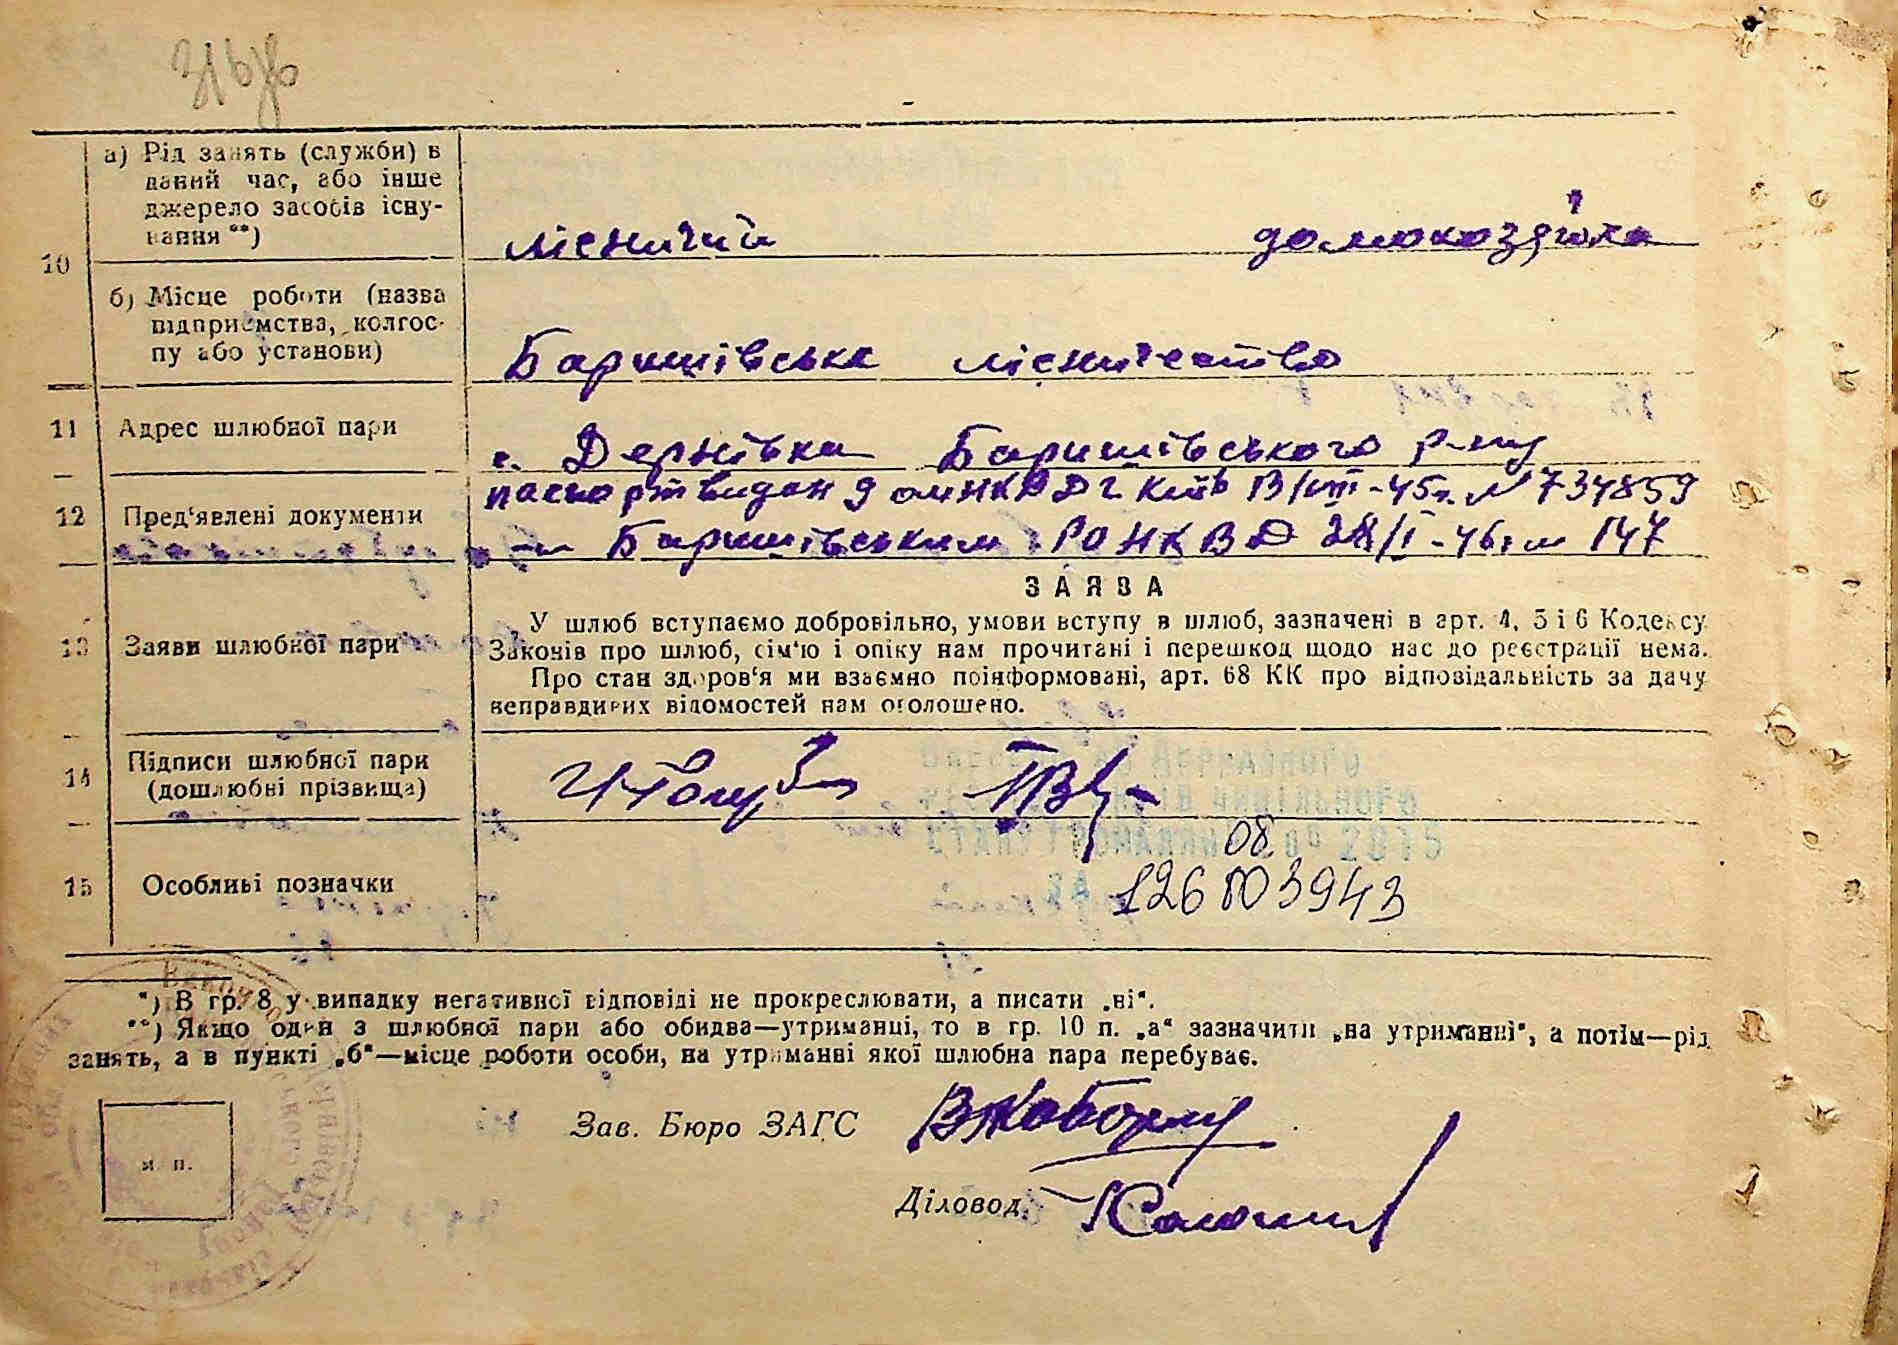 10 а) Рід занять (служби) в
даний час, або інше
джерело засобів існу-
вання **)
лісничий домохозяйка
б) Місце роботи (назва
підприємства, колгос-
пу або установи)
Баришівське лісничество
11 Адрес шлюбної пари
с. Дернівка Баришівського р-ну
12 Пред'явлені документи
паспорт видан 9 о м НКВД г. Київ 13/VIII-45г. № 734859
-"- Баришівським РОНКВД 28/I-46г № 147
ЗАЯВА
13 Заяви шлюбної пари
У шлюб вступаємо добровільно, умови вступу в шлюб, зазначені в арт. 4, 5 і 6 Кодексу
Законів про шлюб, сім'ю і опіку нам прочитані і перешкод щодо нас до реєстрації нема.
Про стан здоров'я ми взаємно поінформовані, арт. 68 КК про відповідальність за дачу
неправдивих відомостей нам оголошено.
14 Підписи шлюбної пари
(дошлюбні прізвища)
Державного
цивільного
стану громадян 2015
08
15 Особливі позначки
126 003943
*) В гр. 8 у випадку негативної відповіді не прокреслювати, а писати „ні“.
**) Якщо один з шлюбної пари або обидва—утриманці, то в гр. 10 п. „а“ зазначити „на утриманні“, а потім—рід
занять, а в пункті „б“—місце роботи особи, на утриманні якої шлюбна пара перебуває.
Зав. Бюро ЗАГС
м. п.
Діловод